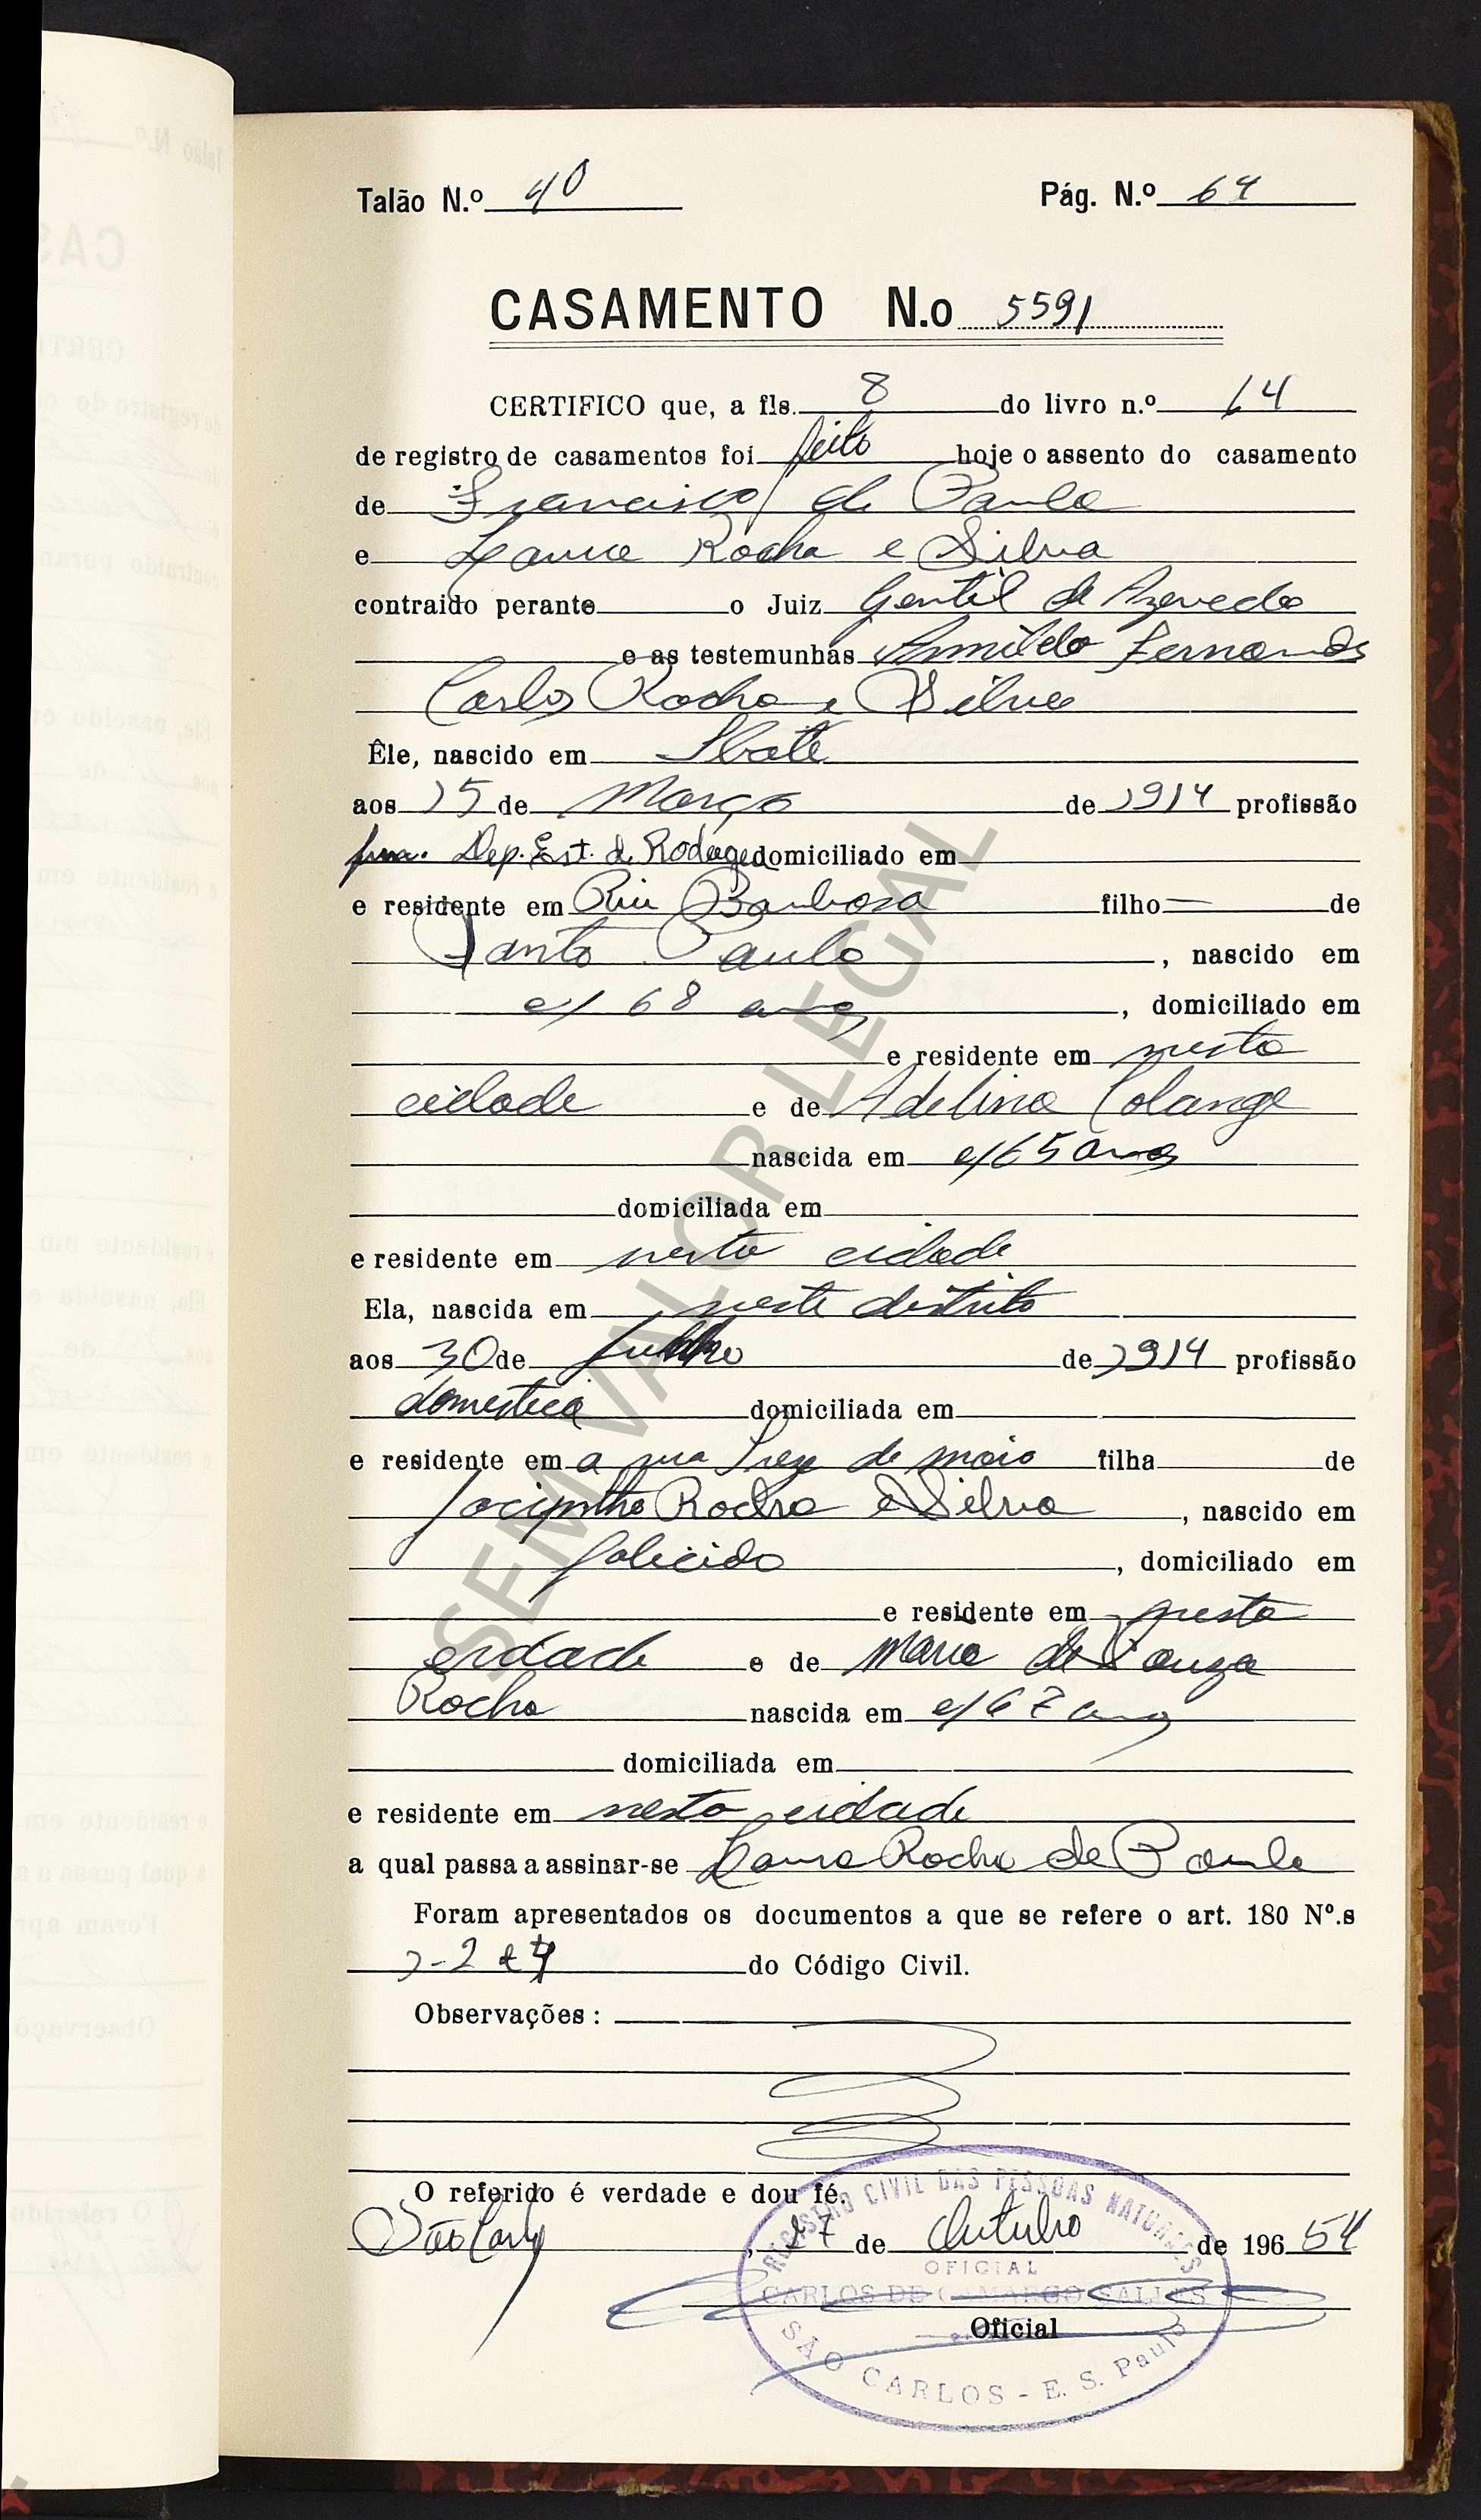 Talão N.º 40 Pág. N.º 64
CASAMENTO N.o 5591
CERTIFICO que, a fls. 8 do livro n.º 14
de registro de casamentos foi feito hoje o assento do casamento
de Francisco de Paula
e Laura Rocha e Silva
contraido perante o Juiz Gentil de Azevedo
e as testemunhas Fernandes
Carlos Rocha e Silva
Êle, nascido em Ibaté
aos 15 de Março de 1914 profissão
Dep. Est. de Rodagem domiciliado em
e residente em Rui Barbosa filho de
Santo Paulo, nascido em
c/ 68 anos, domiciliado em
e residente em nesta
cidade e de Adelina Colange
nascida em c/ 65 anos
domiciliada em
e residente em nesta cidade
Ela, nascida em neste distrito
aos 30 de de 1914 profissão
domestica domiciliada em
e residente em a rua Treze de maio filha de
Jacintho Rocha e Silva, nascido em
falecido, domiciliado em
e residente em nesta
cidade e de Maria de Souza
Rocha nascida em c/ 67 anos
domiciliada em
e residente em nesta cidade
a qual passa a assinar-se Laura Rocha de Paula
Foram apresentados os documentos a que se refere o art. 180 Nº.s
1-2 e 4 do Código Civil.
Observações:
O referido é verdade e dou fé.
São Carlos, 27 de Outubro de 196 54
Oficial
REGISTRO CIVIL DAS PESSOAS NATURAES
OFICIAL
CARLOS DE CAMARGO SALLES
SÃO CARLOS - E. S. Paulo
SEM VALOR LEGAL